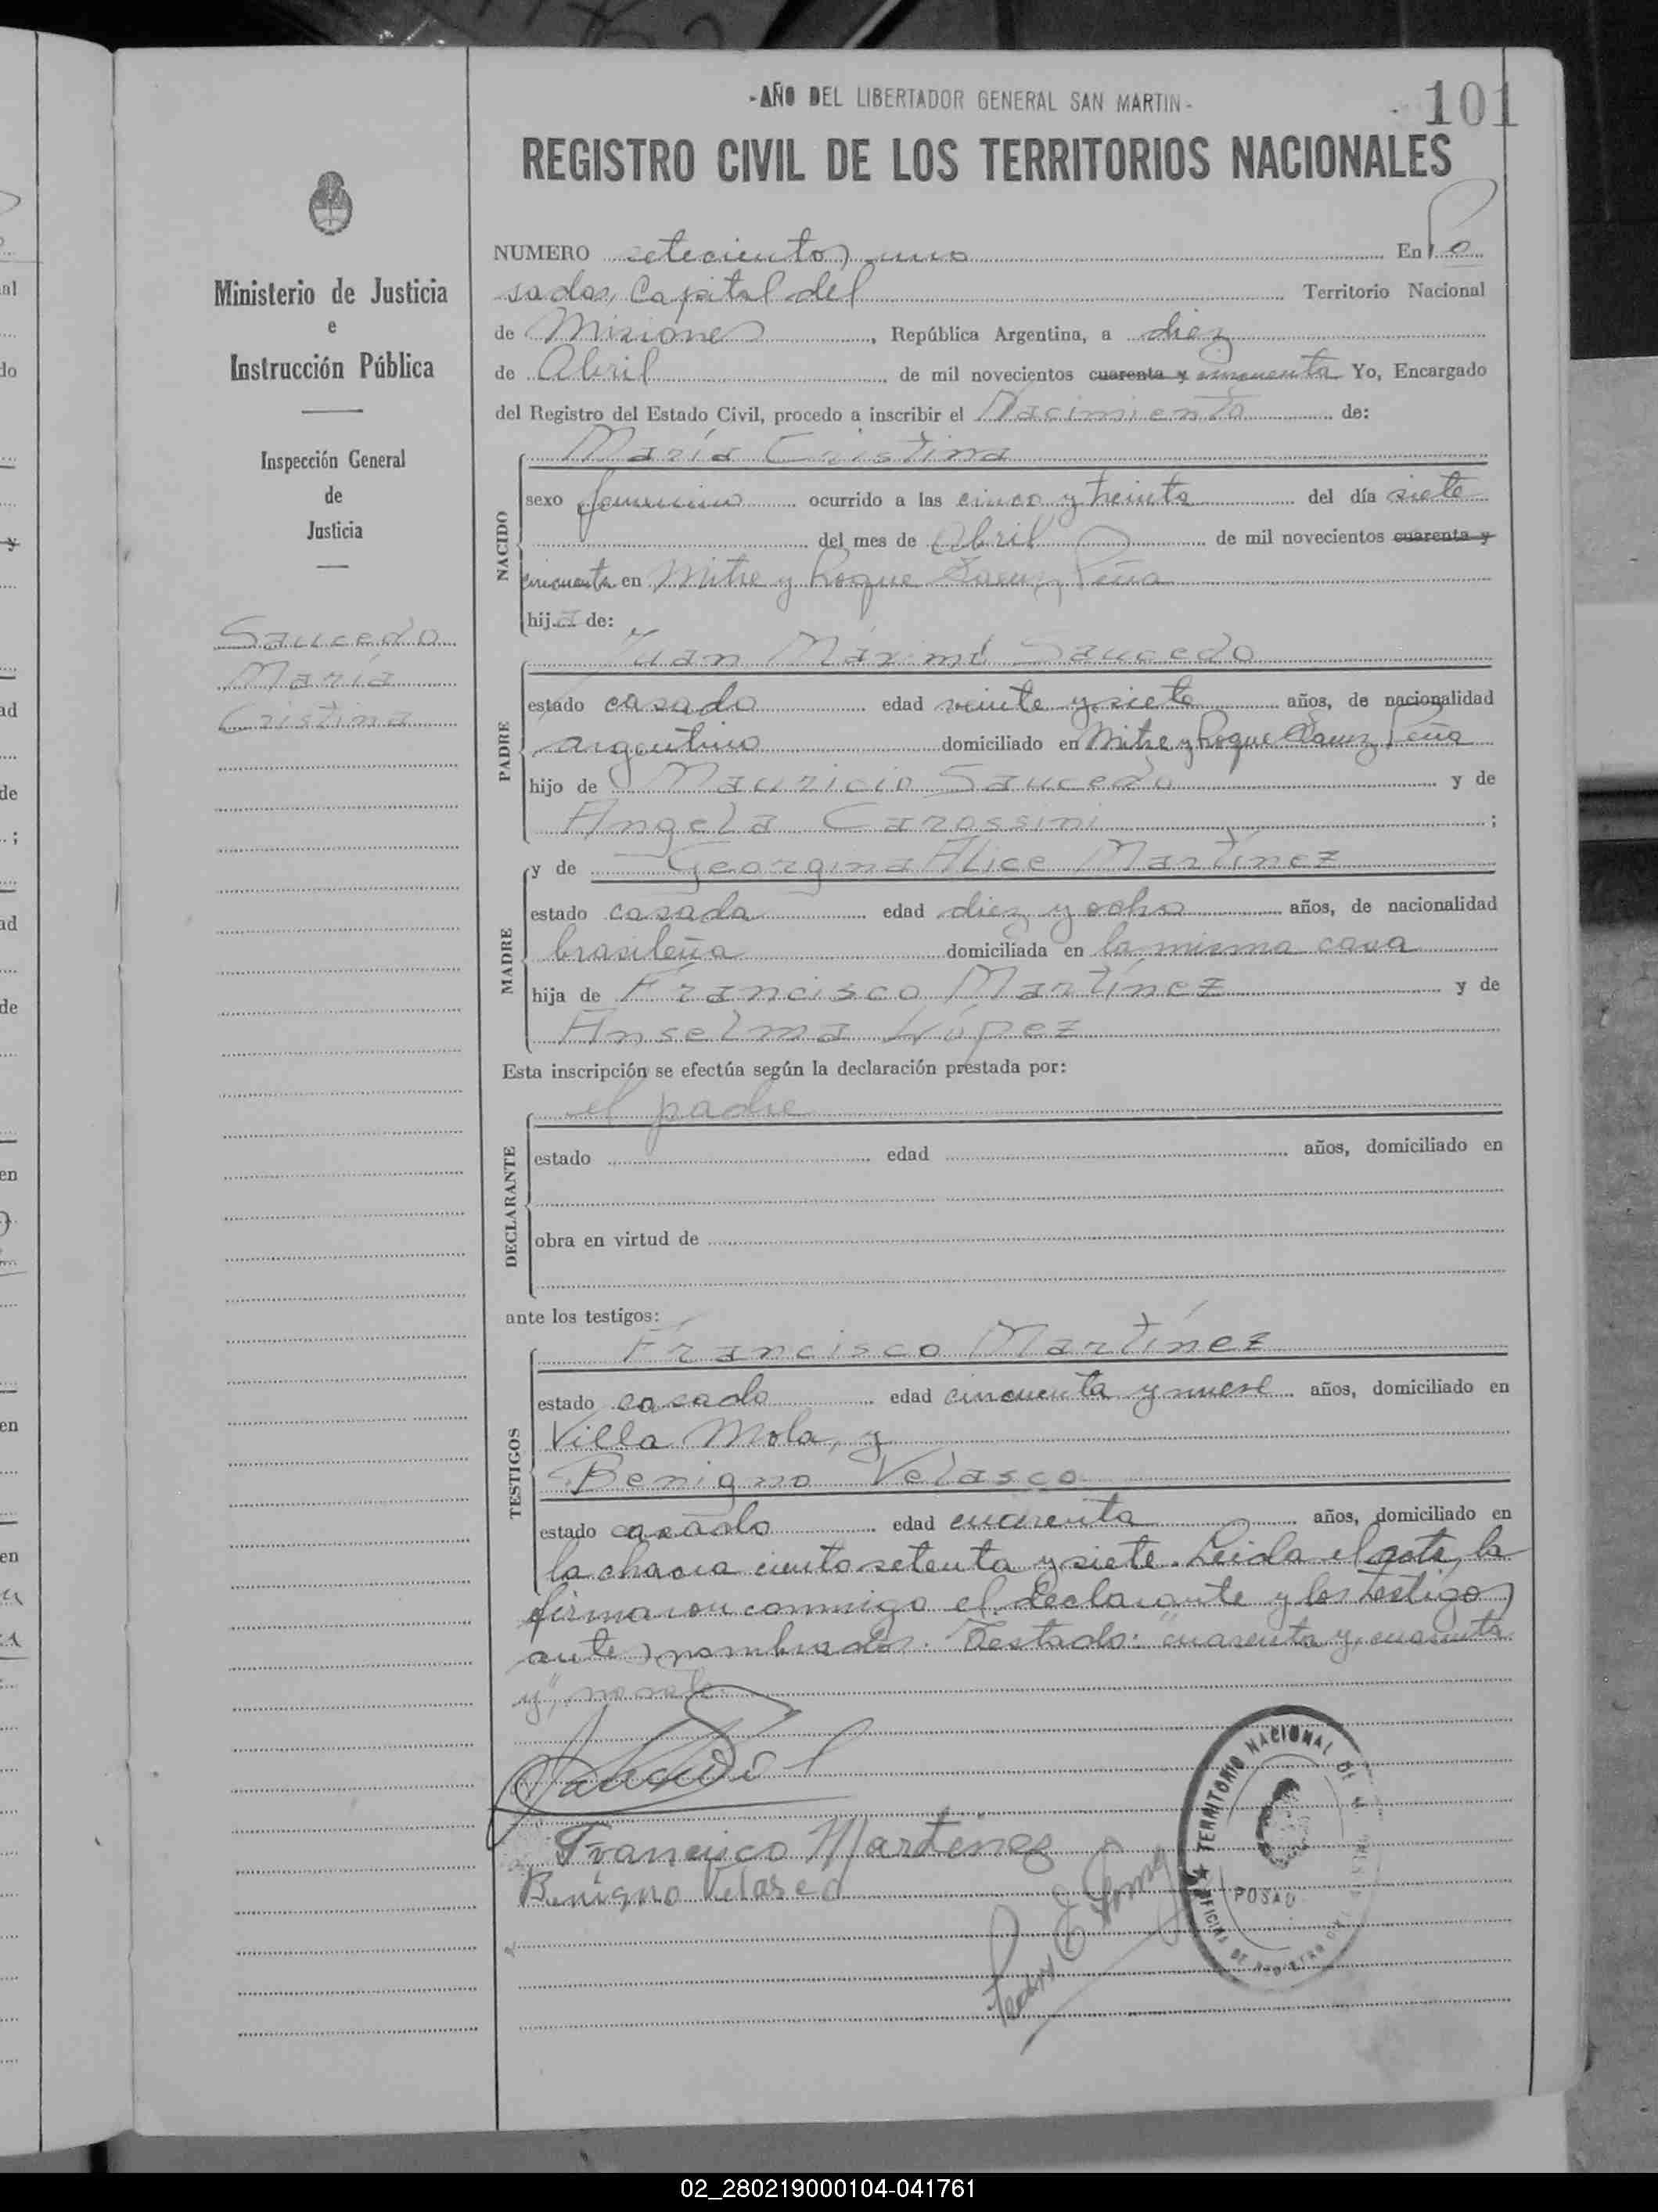 -AÑO DEL LIBERTADOR GENERAL SAN MARTIN-
101
REGISTRO CIVIL DE LOS TERRITORIOS NACIONALES
Ministerio de Justicia
e
Instrucción Pública
Inspección General
de
Justicia
Saucedo
María
Cristina
NUMERO setecientos uno En Po
sadas, Capital del Territorio Nacional
de Misiones, República Argentina, a diez
de Abril de mil novecientos cuarenta y cincuenta Yo, Encargado
del Registro del Estado Civil, procedo a inscribir el Nacimiento de:
María Cristina
NACIDO
sexo femenino ocurrido a las cinco y treinta del día siete
del mes de Abril de mil novecientos cuarenta y
cincuenta en Mitre y Roque Saenz Peña
hija de:
Juan Máximo Saucedo
PADRE
estado casado edad veinte y siete años, de nacionalidad
argentino domiciliado en Mitre y Roque Saenz Peña
hijo de Mauricio Saucedo y de
Angela Carossini;
y de Georgina Alice Martínez
MADRE
estado casada edad diez y ocho años, de nacionalidad
brasileña domiciliada en la misma casa
hija de Francisco Martínez y de
Anselma López
Esta inscripción se efectúa según la declaración prestada por:
el padre
DECLARANTE
estado edad años, domiciliado en
obra en virtud de
ante los testigos:
Francisco Martínez
TESTIGOS
estado casado edad cincuenta y nueve años, domiciliado en
Villa Mola, y
Benigno Velasco
estado casado edad cuarenta años, domiciliado en
la chacra ciento setenta y siete. Leida el acta, la
firmaron conmigo el declarante y los testigos
antes nombrados. Testado: "cuarenta y, cuarenta
y", no vale.
Francisco Martinez
Benigno Velasco
TERRITORIO NACIONAL DE
POSAD
OFICINA DE REGISTRO
02_280219000104-041761